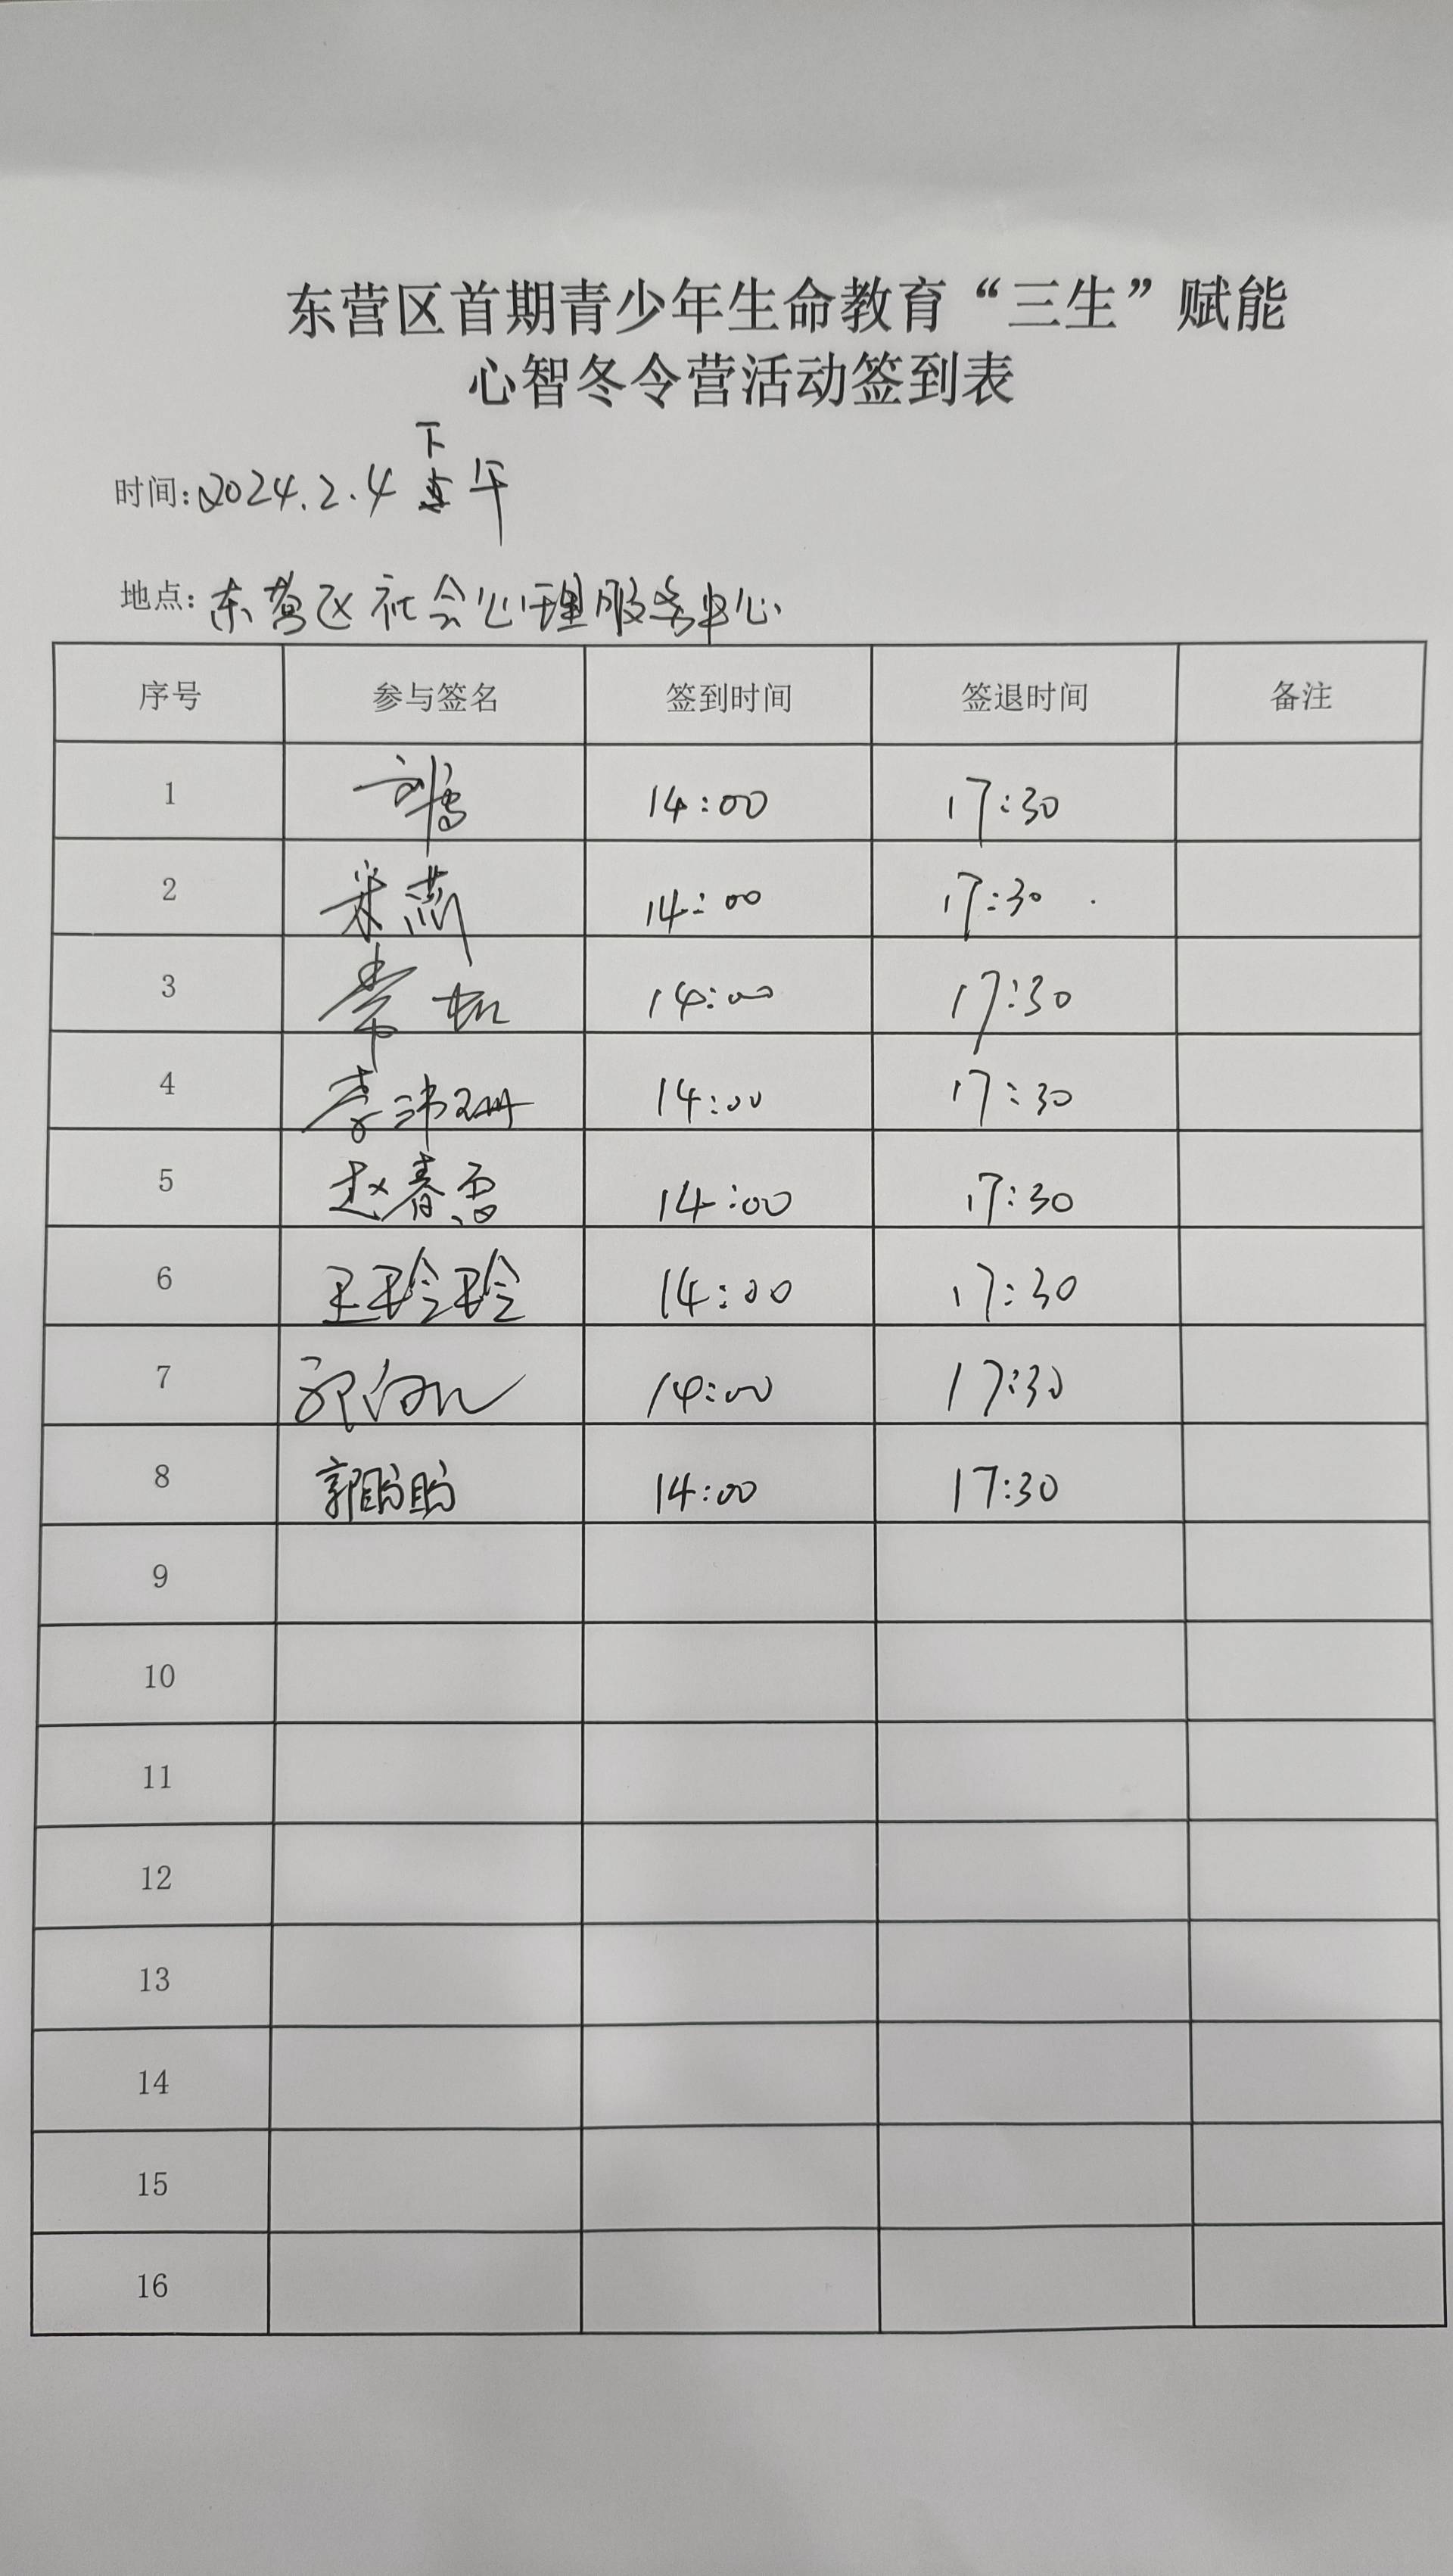 东营区首期青少年生命教育“三生”赋能
心智冬令营活动签到表
时间:2024.2.4 下午
地点:东营区社会心理服务中心
序号 参与签名 签到时间 签退时间 备注
1 14:00 17:30
2 米燕 14:00 17:30
3 14:00 17:30
4 14:00 17:30
5 赵春雷 14:00 17:30
6 王玲玲 14:00 17:30
7 14:00 17:30
8 郭盼盼 14:00 17:30
9
10
11
12
13
14
15
16